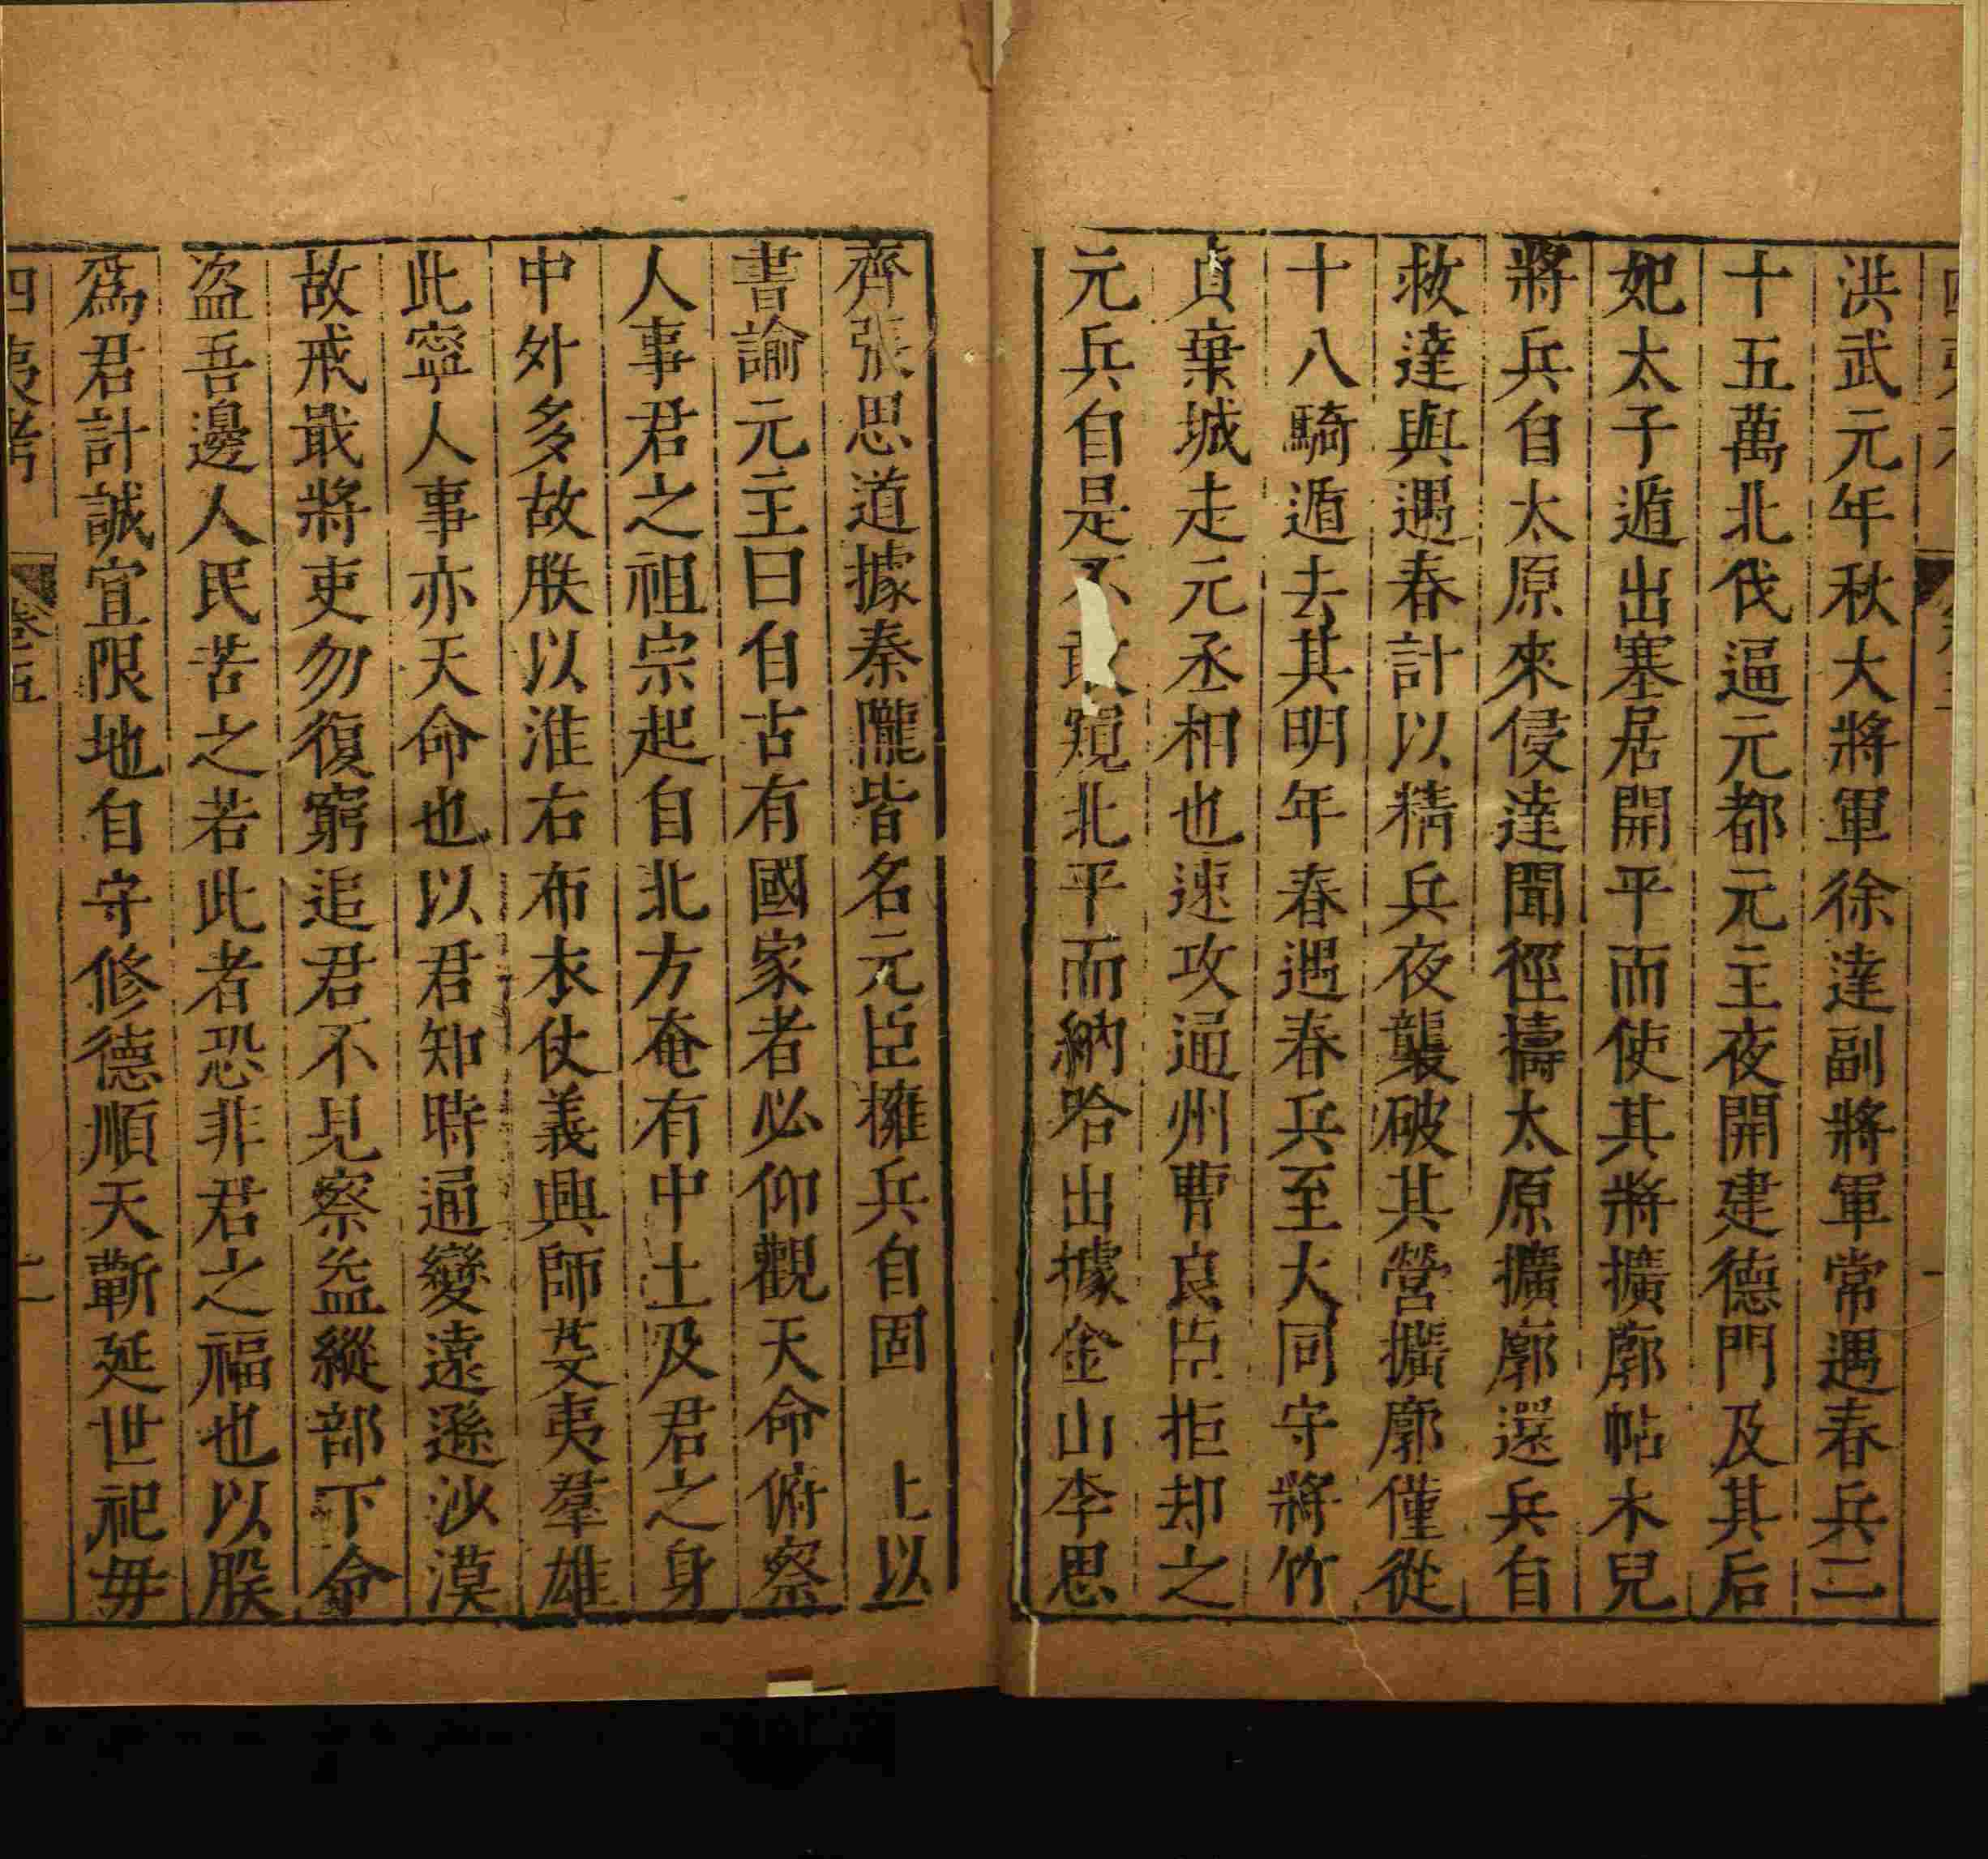 洪武元年秋大將軍徐達副將軍常遇春兵二
十五萬北伐逼元都元主夜開建德門及其后
妃太子遁出塞居開平而使其將擴廓帖木兒
將兵自太原來侵達聞徑擣太原擴廓還兵自
救達與遇春計以精兵夜襲破其營擴廓僅從
十八騎遁去其明年春遇春兵至大同守將竹
貞棄城走元丞相也速攻通州曹良臣拒却之
元兵自是不敢窺北平而納哈出據金山李思
齊張思道據秦隴皆名元臣擁兵自固　上以
書諭元主曰自古有國家者必仰觀天命俯察
人事君之祖宗起自北方奄有中土及君之身
中外多故朕以淮右布衣仗義興師芟夷羣雄
此寧人事亦天命也以君知時通變遠遜沙漠
故戒戢將吏勿復窮追君不見察益縱部下命
盗吾邊人民苦之若此者恐非君之福也以朕
爲君計誠宜限地自守修德順天蘄延世祀毋
四夷考　卷五